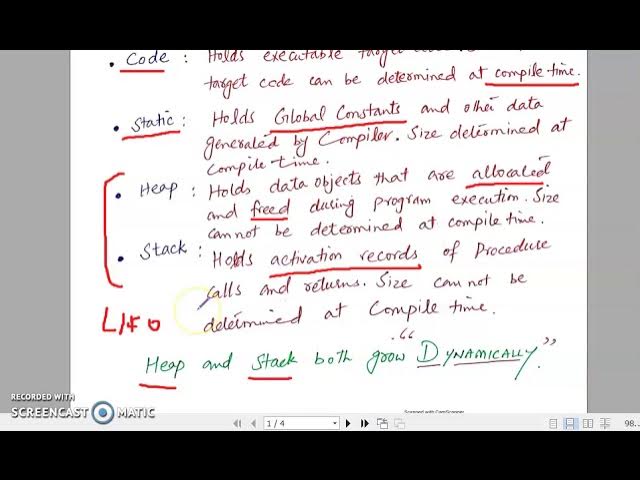 • Code : Holds executable target
target code can be determined at compile time.
• Static : Holds Global Constants and other data
generated by Compiler. Size determined at
compile time.
• Heap : Holds data objects that are allocated
and freed during program execution. Size
cannot be determined at compile time.
• Stack : Holds activation records of Procedure
calls and returns. Size can not be
determined at Compile time.
LIFO
Heap and Stack both grow "DYNAMICALLY."
RECORDED WITH
SCREENCAST MATIC
Scanned with CamScanner
1 / 4
98...